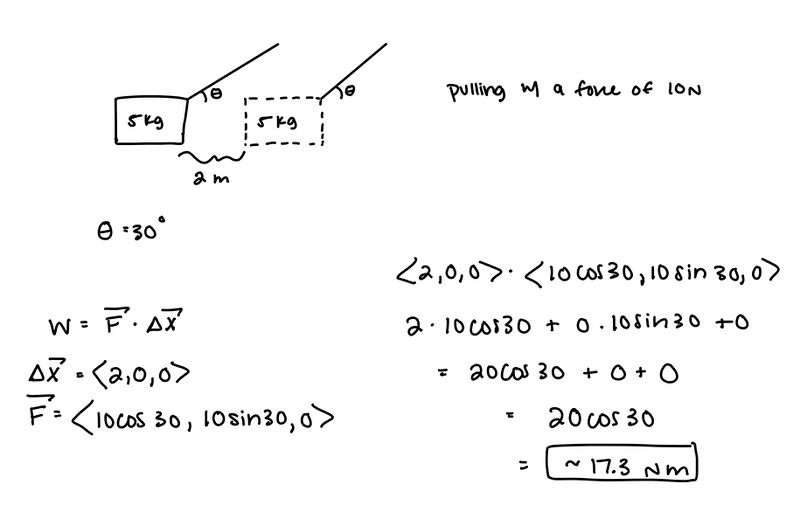 θ
θ
pulling w a force of 10N
5kg
5kg
2 m
θ = 30°
W = F⃗ · Δx⃗
Δx⃗ = <2,0,0>
F⃗ = <10cos 30, 10sin30, 0>
<2,0,0> · <10cos30, 10sin30, 0>
2 · 10cos30 + 0 · 10sin30 + 0
= 20cos 30 + 0 + 0
= 20cos30
= ~ 17.3 Nm